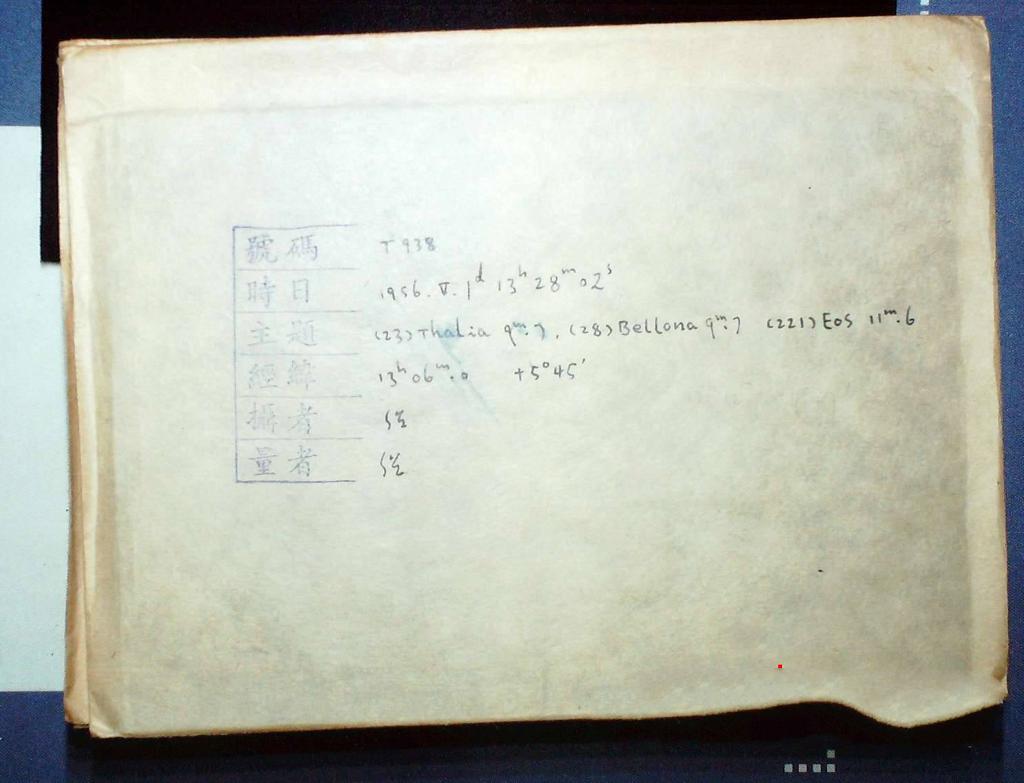 號碼 T 938
時日 1956. V. 1ᵈ 13ʰ 28ᵐ 02ˢ
主題 (23) Thalia 9ᵐ.7, (28) Bellona 9ᵐ.7 (221) Eos 11ᵐ.6
經緯 13ʰ 06ᵐ.0 +5°45′
攝者
量者